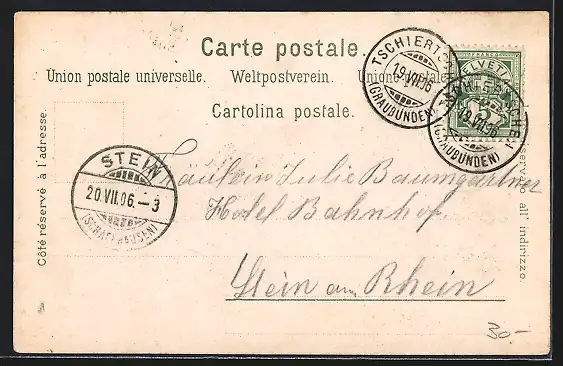 Carte postale.
Union postale universelle. Weltpostverein. Unione postale
Cartolina postale.
Côté réservé à l'adresse.
servizio all' indirizzo.
TSCHIERTSCHEN
19.VII.06
(GRAUBÜNDEN)
HELVETIA
TSCHIERTSCHEN
19.VII.06
(GRAUBÜNDEN)
STEIN
20.VII.06.–3
(SCHAFFHAUSEN)
Fräulein Julie Baumgartner
Hotel Bahnhof
Stein am Rhein
30.-